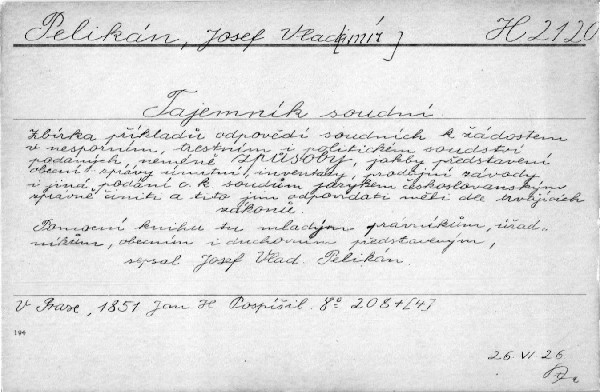 Pelikán, Josef Vlad[imír] H 2120
Tajemník soudní.
Zbírka příkladů odpovědí soudních k žádostem
v nesporním, trestním i politickém soudství
podaných, neméně způsoby, jakby představení
obecní správy úmrtní, inventáry, prodejní závody
i jiná podání c. k. soudům jazykem českoslovanským
správně činiti a tito jim odpovídati měli dle trvajících
zákonů.
Pomocní kniha tu mladým právníkům, úřad-
níkům, obecním i duchovním představeným,
sepsal Josef Vlad. Pelikán.
V Praze, 1851 Jan H Pospíšil. 8° 208+[4]
194
26 VI 26